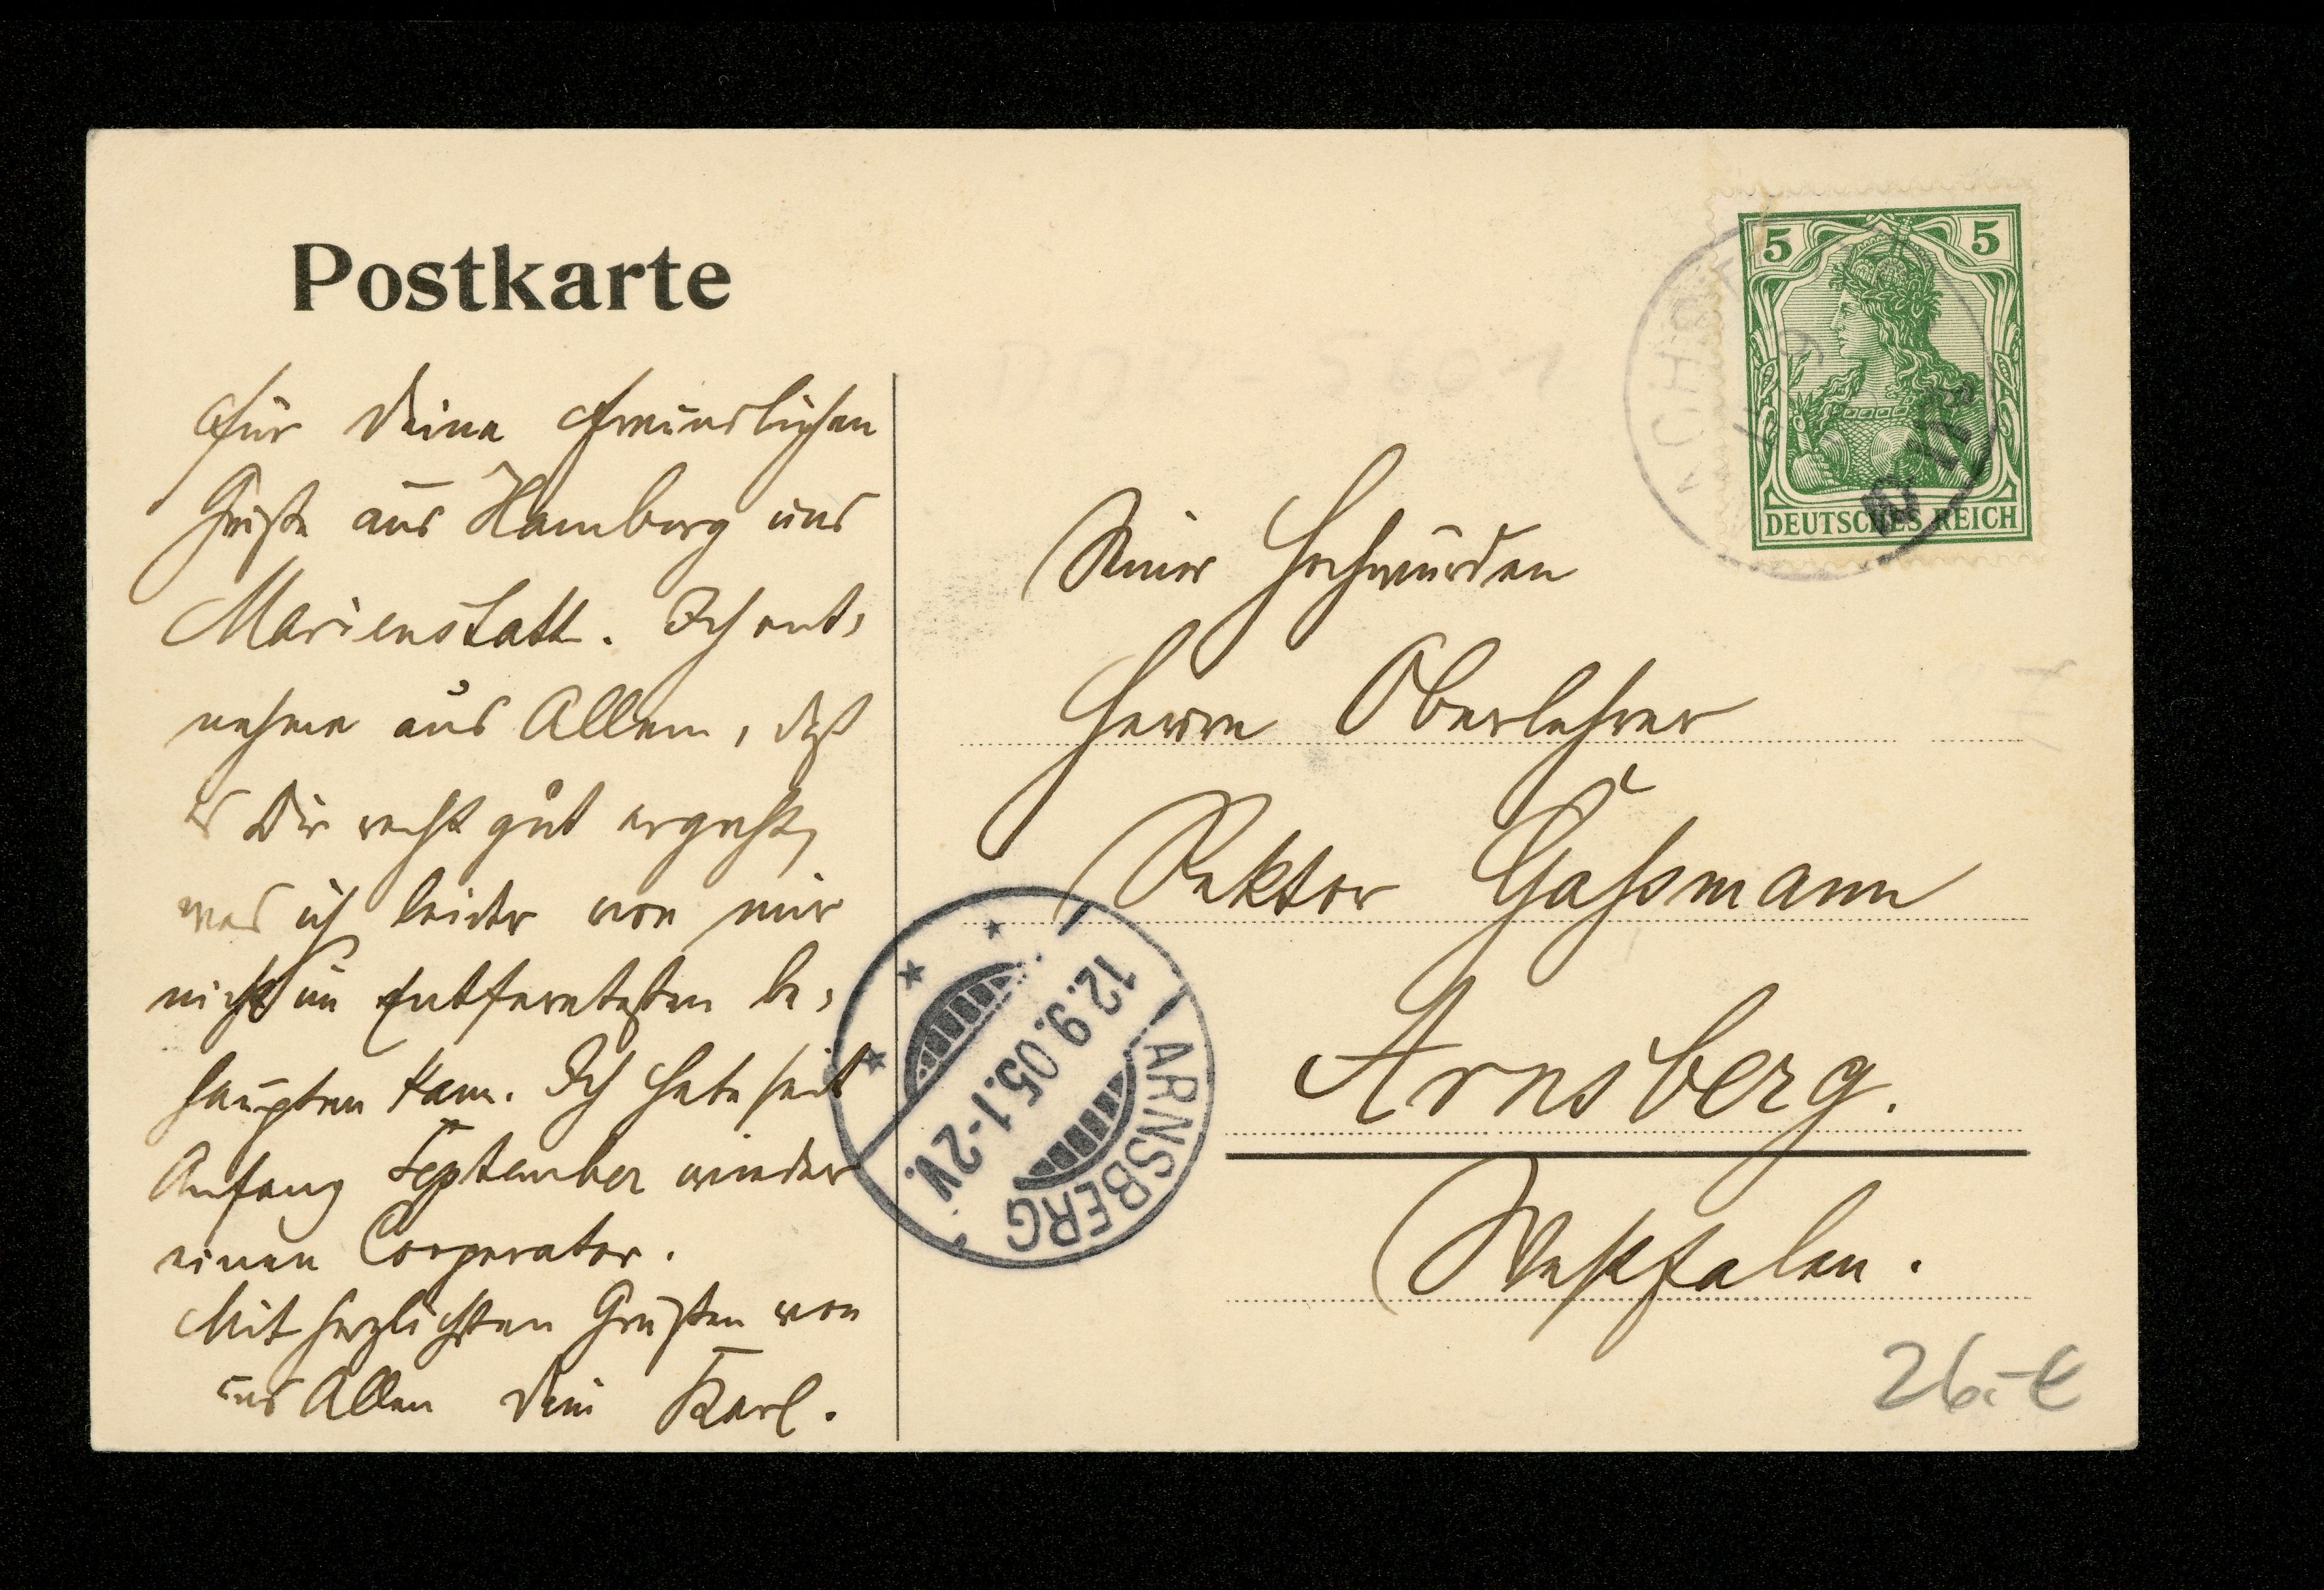 Postkarte
Für Deine freundlichen
Grüße aus Hamburg und
Marienstatt. Ich ent-
nehme aus Allem, daß
es Dir recht gut ergeht,
was ich leider von mir
nicht im Entferntesten be-
haupten kann. Ich habe seit
Anfang September wieder
einen Cooperator.
Mit herzlichsten Grüßen von
uns Allen Dein Karl.
5 5
DEUTSCHES REICH
Seiner Hochwürden
Herrn Oberlehrer
Rektor Gaßmann
Arnsberg.
Westfalen.
ARNSBERG
12.9.05.1-2V.
26.-€